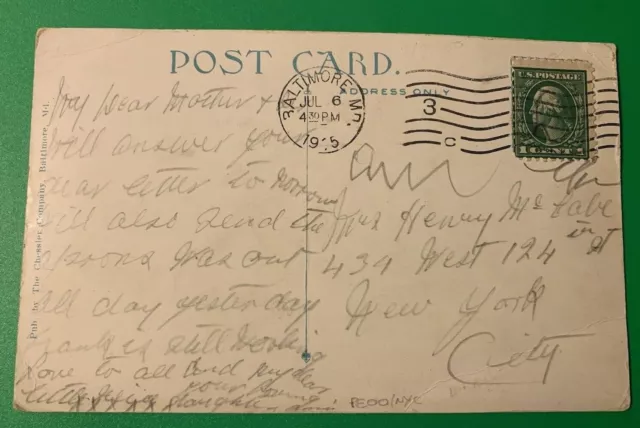 POST CARD.
ADDRESS ONLY
BALTIMORE, MD.
JUL 6
4 30 PM
1915
3
C
U.S. POSTAGE
1 CENT 1
Pub. by The Chessler Company, Baltimore, Md.
My Dear Mother +
Will answer your
dear letter to morrow
will also send the
aprons was out
all day yesterday
Frank is still working
love to all and my dear
little
your loving
daughter
xxxxxxx
Mrs Henry McCabe
434 West 124 St
New York
City
PEOO/NYC